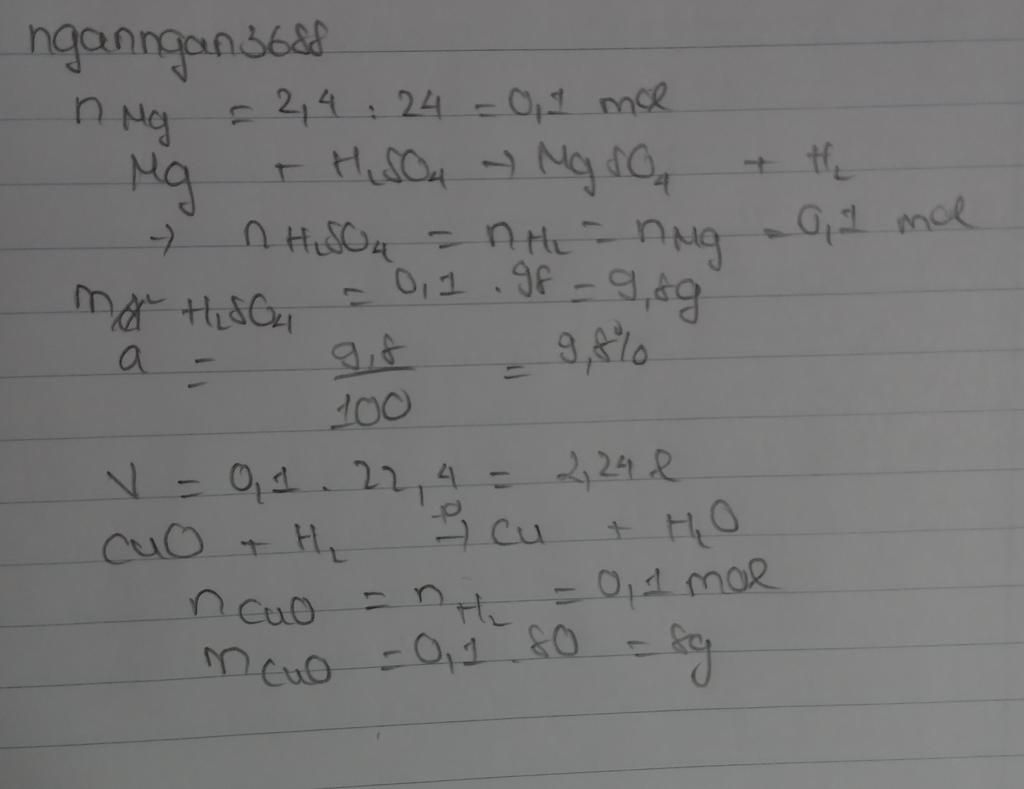 nganngan3688
n Mg = 2,4 : 24 = 0,1 mol
Mg + H₂SO₄ → MgSO₄ + H₂
→ n H₂SO₄ = n H₂ = n Mg = 0,1 mol
m H₂SO₄ = 0,1 . 98 = 9,8g
a = 9,8/100 = 9,8%
V = 0,1 . 22,4 = 2,24 l
CuO + H₂ →(t°) Cu + H₂O
n CuO = n H₂ = 0,1 mol
m CuO = 0,1 . 80 = 8g